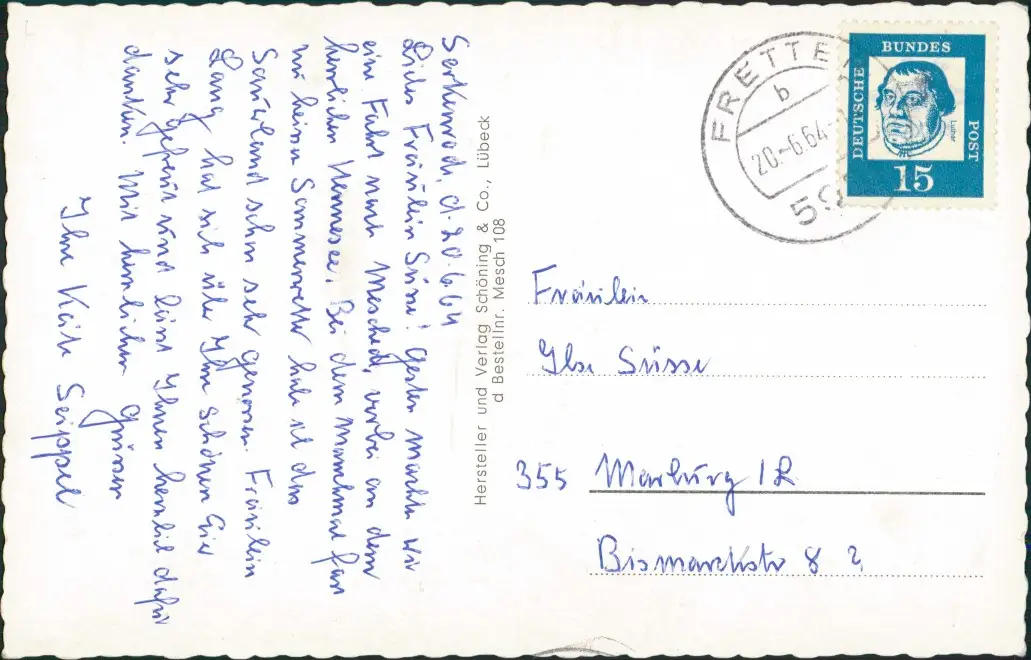 Serkenrode, d. 20.6.64
Liebes Fräulein Süsse! Gestern machten wir
eine Fahrt nach Meschede, vorbei an dem
herrlichen Hennesee. Bei dem manchmal fast
zu heissen Sommerwetter habe ich das
Sauerland schon sehr genossen. Fräulein
Lang hat sich über Ihre schönen Eier
sehr gefreut und lässt Ihnen herzlich dafür
danken. Mit herzlichen Grüssen
Ihre Käte Seippel
Hersteller und Verlag Schöning & Co., Lübeck
d Bestellnr. Mesch 108
FRETTER
b
20.-6.64
59
DEUTSCHE
BUNDES
POST
Luther
15
Fräulein
Ilse Süsse
355 Marburg/L
Bismarckstr 8